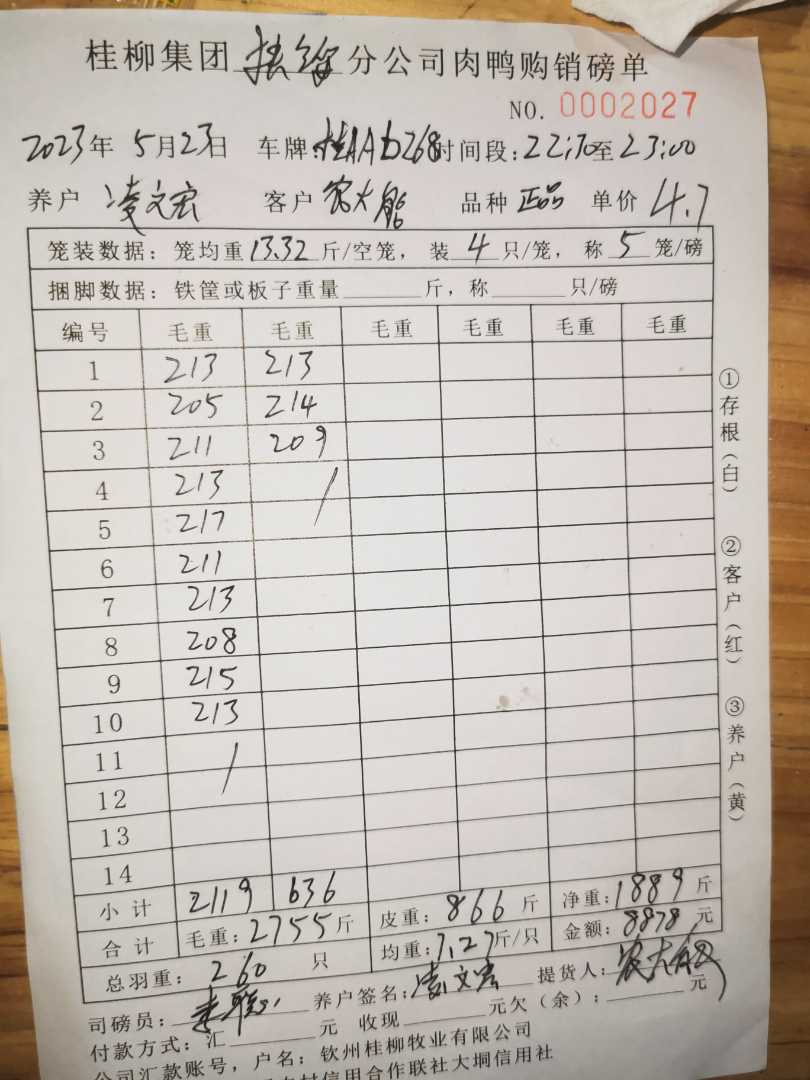 桂柳集团 扶绥 分公司肉鸭购销磅单
NO. 0002027
2023年 5月23日 车牌:桂AAb268 时间段:22:30至23:00
养户 凌文宏 客户 农大船 品种 正品 单价 4.7
笼装数据: 笼均重13.32斤/空笼, 装 4 只/笼, 称 5 笼/磅
捆脚数据: 铁筐或板子重量 斤, 称 只/磅
编号 毛重 毛重 毛重 毛重 毛重 毛重
1 213 213
2 205 214
3 211 209
4 213 /
5 217
6 211
7 213
8 208
9 215
10 213
11 /
12
13
14
小计 2119 636
合计 毛重:2755斤 皮重: 866 斤 净重:1889斤
均重:7.27斤/只 金额:8878元
总羽重: 260 只
司磅员: 养户签名:凌文宏 提货人:
付款方式:汇 元 收现 元欠(余): 元
公司汇款账号,户名:钦州桂柳牧业有限公司
村信用合作联社大垌信用社
①存根(白)
②客户(红)
③养户(黄)